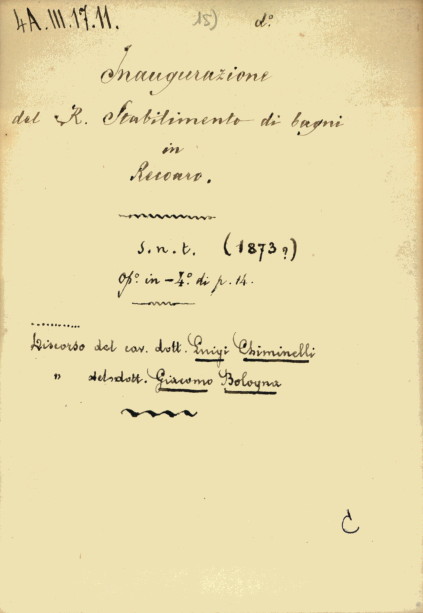 4A.III.17.11. 15) d.º
Inaugurazione
del R. Stabilimento di bagni
in
Recoaro.
s.n.t. (1873?)
Op.º in-4.º di p. 14.
Discorso del cav. dott. Luigi Chiminelli
" del dott. Giacomo Bologna
C